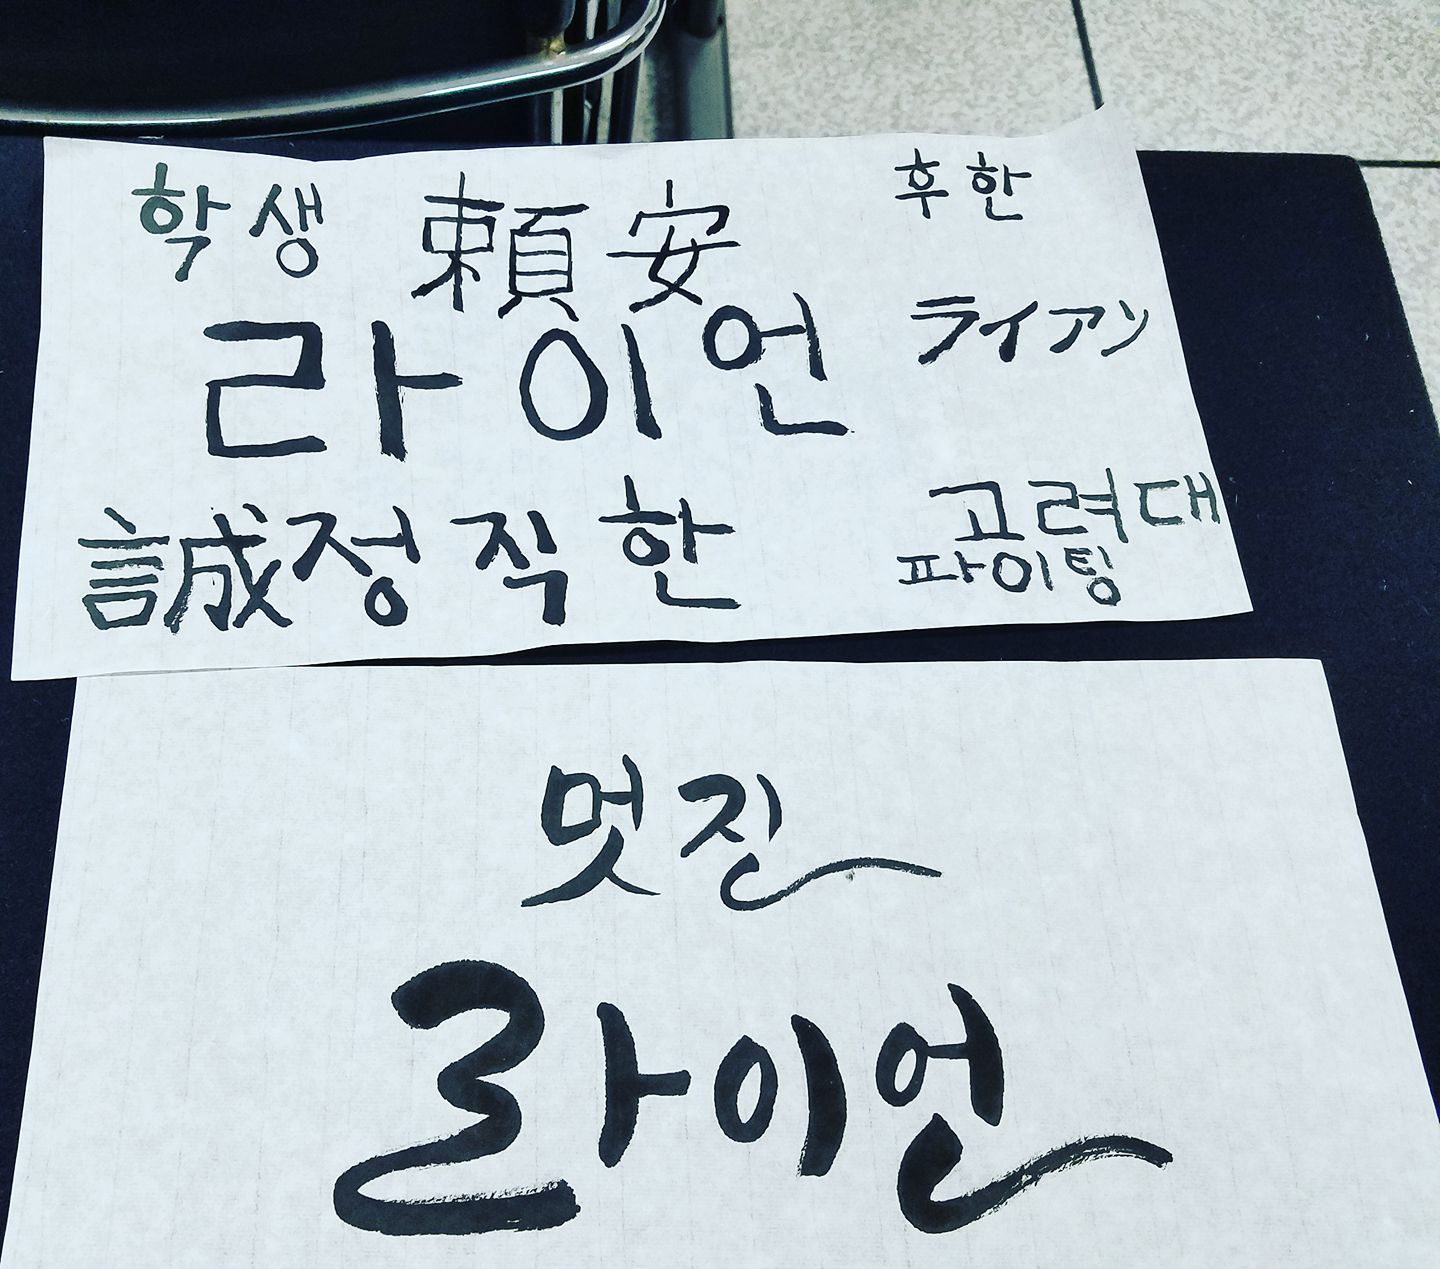 학생 頼安 후한
라이언 ライアン
誠정직한 고려대
파이팅
멋진
라이언